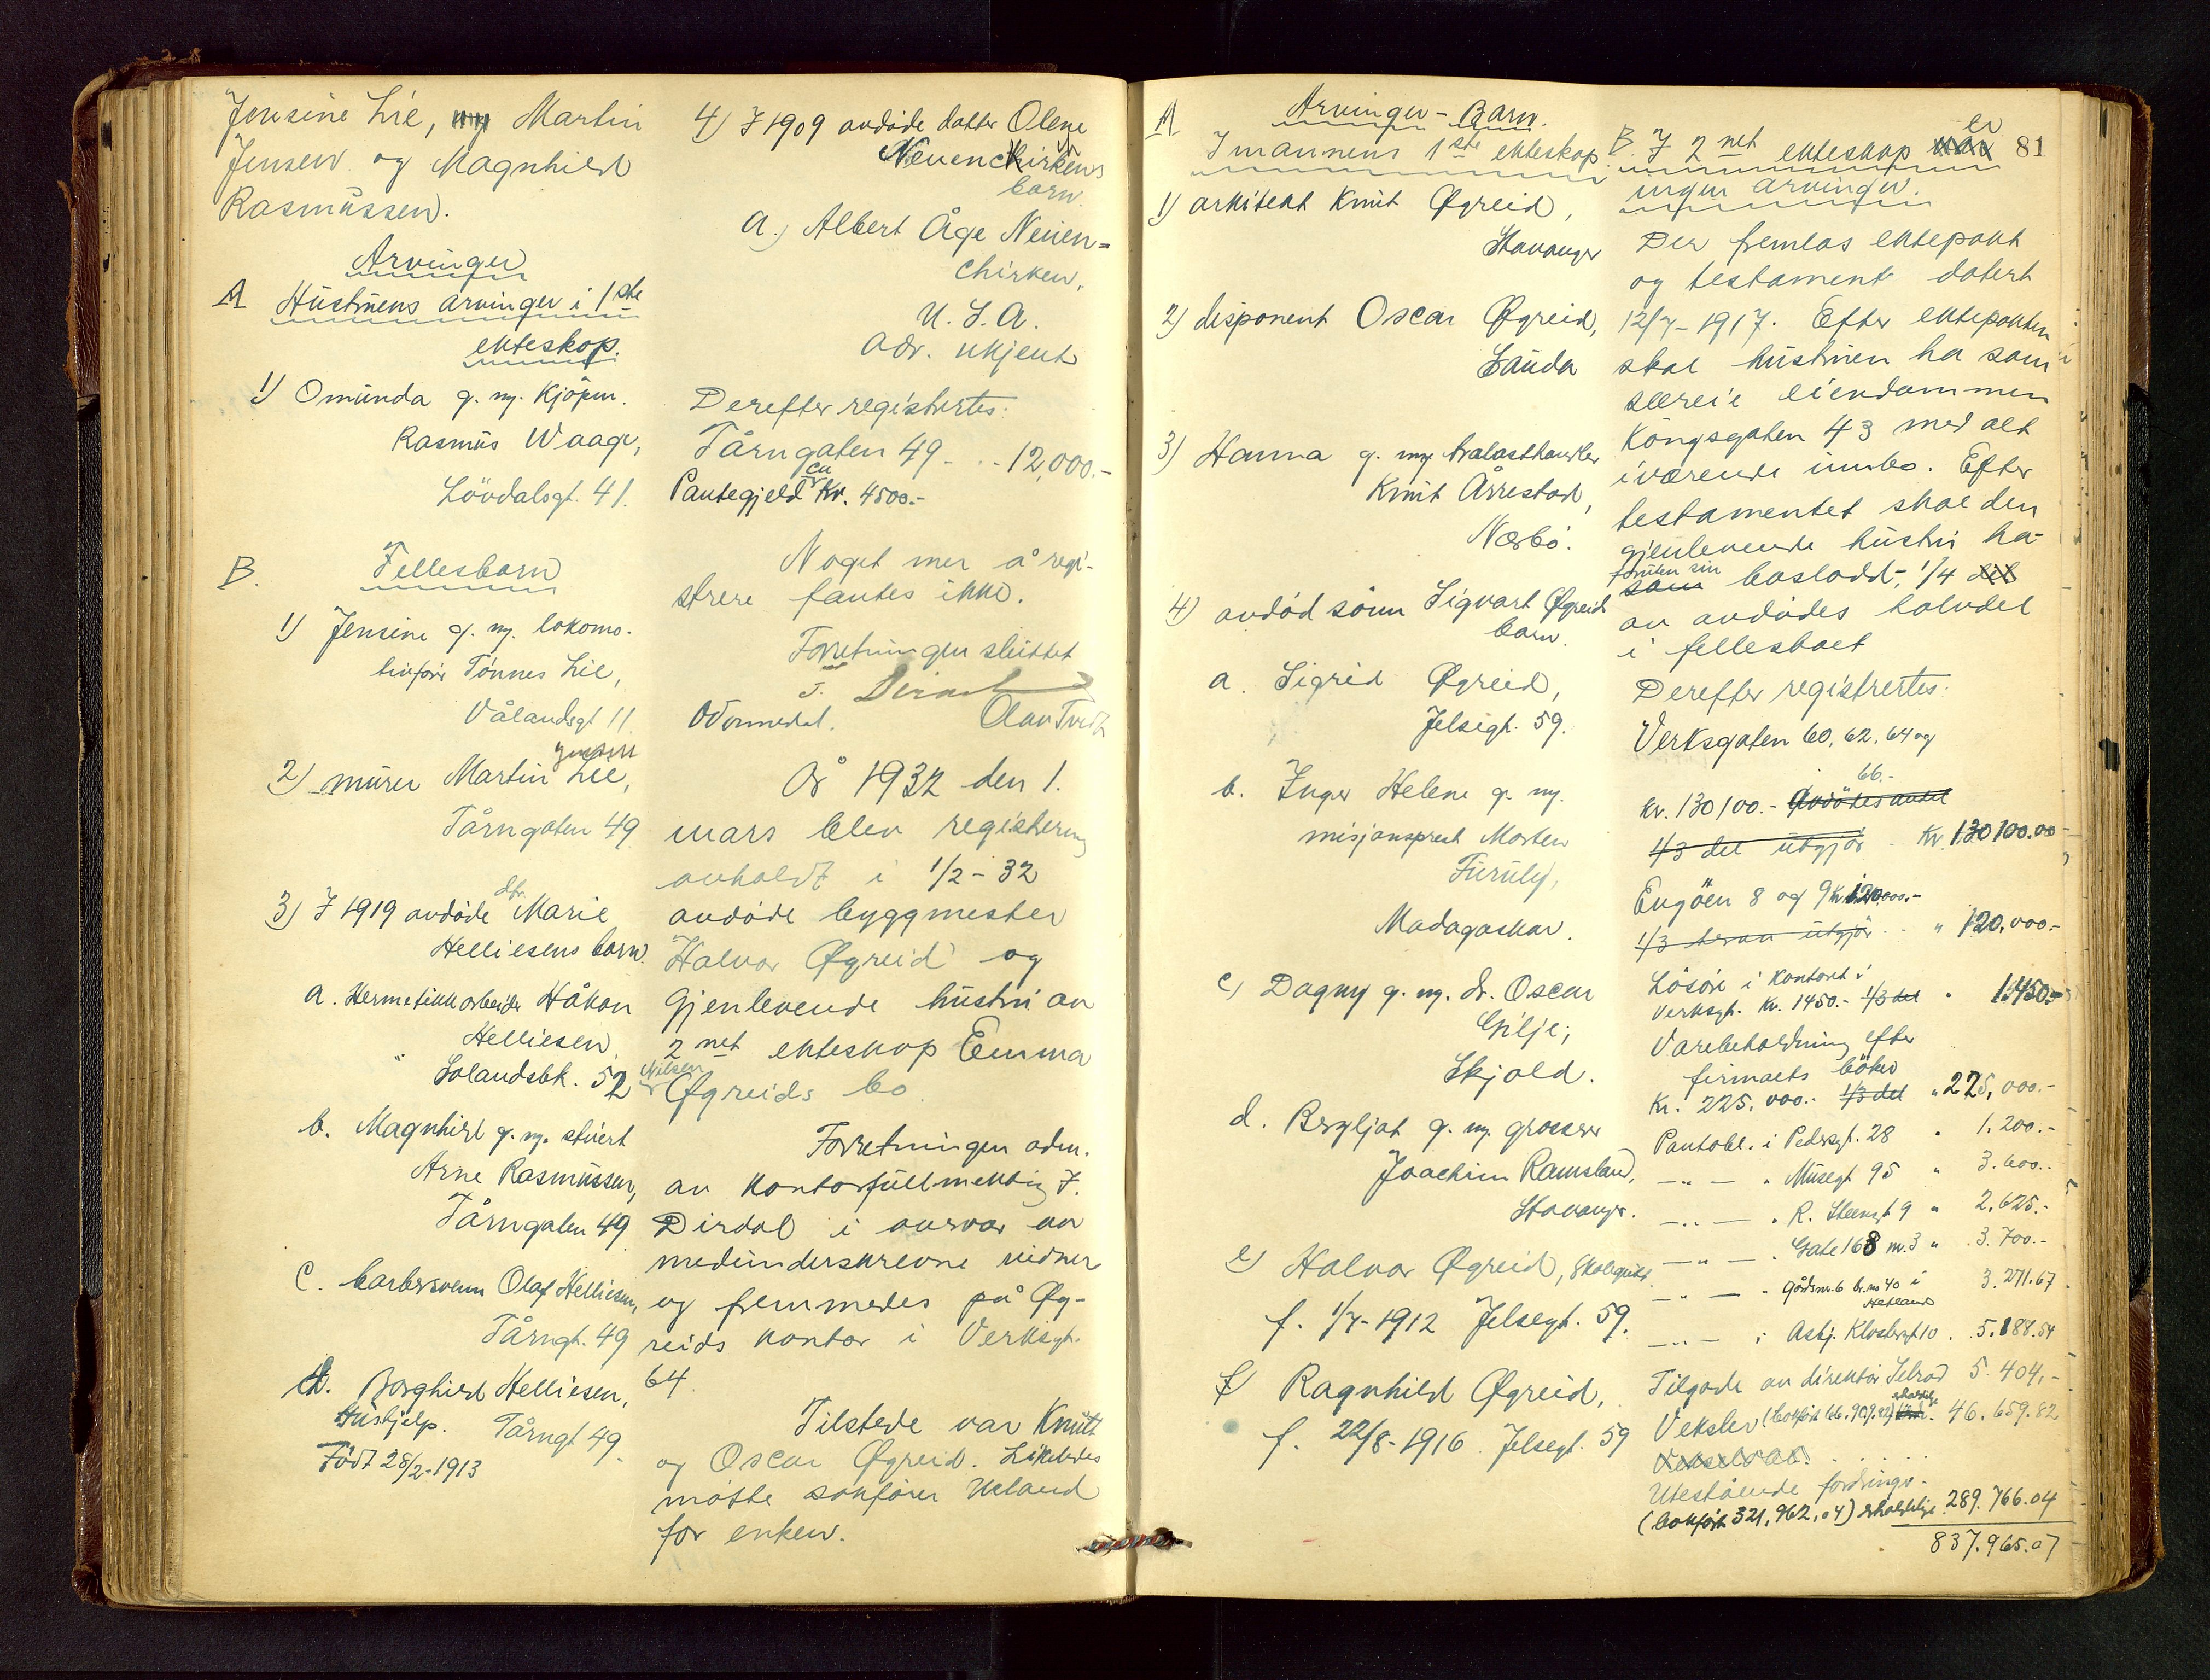 Jensine Lie, Martin
Jensen og Magnhild
Rasmussen.
Arvinger
A Hustruens arvinger i 1ste
ekteskap.
1) Omunda g. m. kjøpm.
Rasmus Waage,
Lövdalsgt. 41.
B. Fellesbarn
1) Jensine g. m. lokomo-
tivfører Tönnes Lie,
Vålandsgt 11.
Jensen
2) murer Martin Lie,
Tårngaten 49
dtr.
3) I 1919 avdöde Marie
Helliesens barn.
a. Hermetikkarbeider Håkon
Helliesen,
Solandsbk. 52
b. Magnhild g. m. stuert
Arne Rasmussen,
Tårngaten 49
c. barbersvenn Olaf Helliesen,
Tårngt. 49
d. Borghild Helliesen,
Hushjelp. Tårngt 49.
Födt 28/2-1913
4) I 1909 avdöde datter Olene
Neuenchirkens
barn.
a.) Albert Åge Neuen-
chirken,
U.S.A.
Adr. ukjent
Derefter registrertes:
Tårngaten 49 - . . 12,000.-
ca
Pantegjeld kr. 4500.-
Noget mer å regi-
strere fantes ikke.
Forretningen sluttet
J. Dirdal
Odvormedal. Olav Tveit
År 1932 den 1.
mars blev registrering
avholdt i 1/2-32
avdöde byggmester
Halvor Øgreid og
gjenlevende hustru av
2net ekteskap Emma
Nilsen
Øgreids bo.
Forretningen adm.
av kontorfullmektig J.
Dirdal i nærvær av
medunderskrevne vidner
og fremmedes på Øg-
reids kontor i Verksgt.
64.
Tilstede var Knut
og Oscar Øgreid. Likeledes
møtte sakfører Ueland
for enken.
Arvinger - Barn.
A
I mannens 1ste ekteskap.
1) arkitekt Knut Øgreid,
Stavanger
2) disponent Oscar Øgreid,
Sauda
3) Hanna g. m. trelasthandler
Knut Årrestad,
Nærbö.
4) avdöd sönn Sigvart Øgreids
barn.
a. Sigrid Øgreid,
Jelsagt. 59.
b. Inger Helene g. m.
misjonsprest Morten
Furuly,
Madagaskar.
c) Dagny g. m. dr. Oscar
Gilje,
Skjold.
d. Bergljot g. m. grosserer
Joachim Ramsland,
Stavanger.
e) Halvor Øgreid, Skolegutt
f. 1/7-1912 Jelsegt. 59.
f) Ragnhild Øgreid,
f. 22/8-1916. Jelsegt. 59
81
er
B. I 2net ekteskap var
ingen arvinger.
Der fremlas ektepakt
og testament datert
12/7-1917. Efter ektepakten
skal hustruen ha som
særeie eiendommen
Kongsgaten 43 med alt
iværende innbo. Efter
testamentet skal den
gjenlevende hustru ha
foruten sin
som boslodd, 1/4 del
av avdödes halvdel
i fellesboet
Derefter registrertes:
Verksgaten 60, 62, 64 og
66.-
kr. 130100.- Avdödes andel
1/3 del utgjör . Kr. 130100.00
Engöen 8 og 9 kr 120,000.-
1/3 herav utgjör . . " 120,000.-
Lösöre i kontoret i
Verksgt. Kr. 1450.- 1/3 del " 1.450.-
Varebeholdning efter
firmaets böker
Kr. 225,000.- 1/3 del " 225,000.-
Pantobl. i Pedersgt. 28 " 1.200.-
— " — " Musegt 95 " 3.600.-
— " — " R. Steensgt 9 " 2,625.-
— " — " Gate 168 nr. 3 " 3.700.-
— " — " Gårdsnr. 6 br. no 40 i 3.271.67
Hetland
— " — " Asbj. Klostersgt 10 . 5.188.54
Tilgode av direktör Selrod 5.404,-
Veksler (bokfört 66.909.82) 46.659.82
Utestående fordringer
(bokfört 321,962,04) 289.766.04
837.965.07